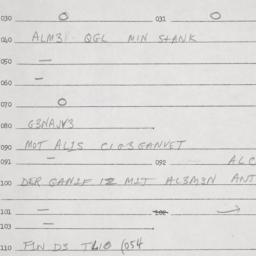 030 O 031 O
040 ALM3I QGL MIN STANK
050 —
060 –
070 O
080 G3NAJV3
090 MOT ALIS C I G3GANVET
091 — 092 ALC
100 DER GANIF IZ MIT AL3M3N ANT
101 — 102 →
103 —
110 FIN D3 (054